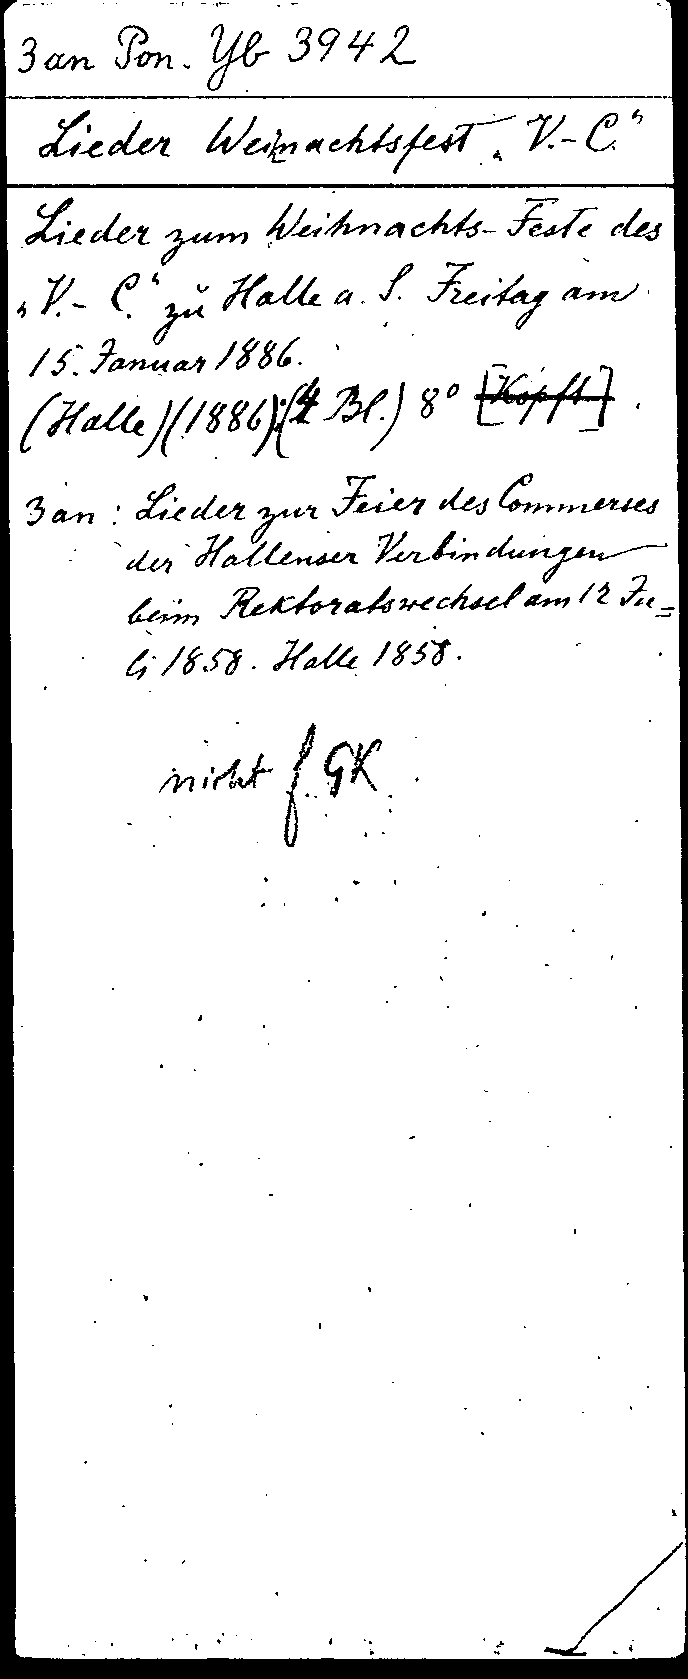 3 an Pon. Yb 3942
Lieder Weihnachtsfest „V.-C."
Lieder zum Weihnachts-Feste des
„V.- C." zu Halle a. S. Freitag am
15. Januar 1886.
(Halle)(1886):(4 Bl.) 8° [Kopft.]
3 an: Lieder zur Feier des Commerses
der Hallenser Verbindungen
beim Rektoratswechsel am 12 Ju=
li 1858. Halle 1858.
nicht f. GK